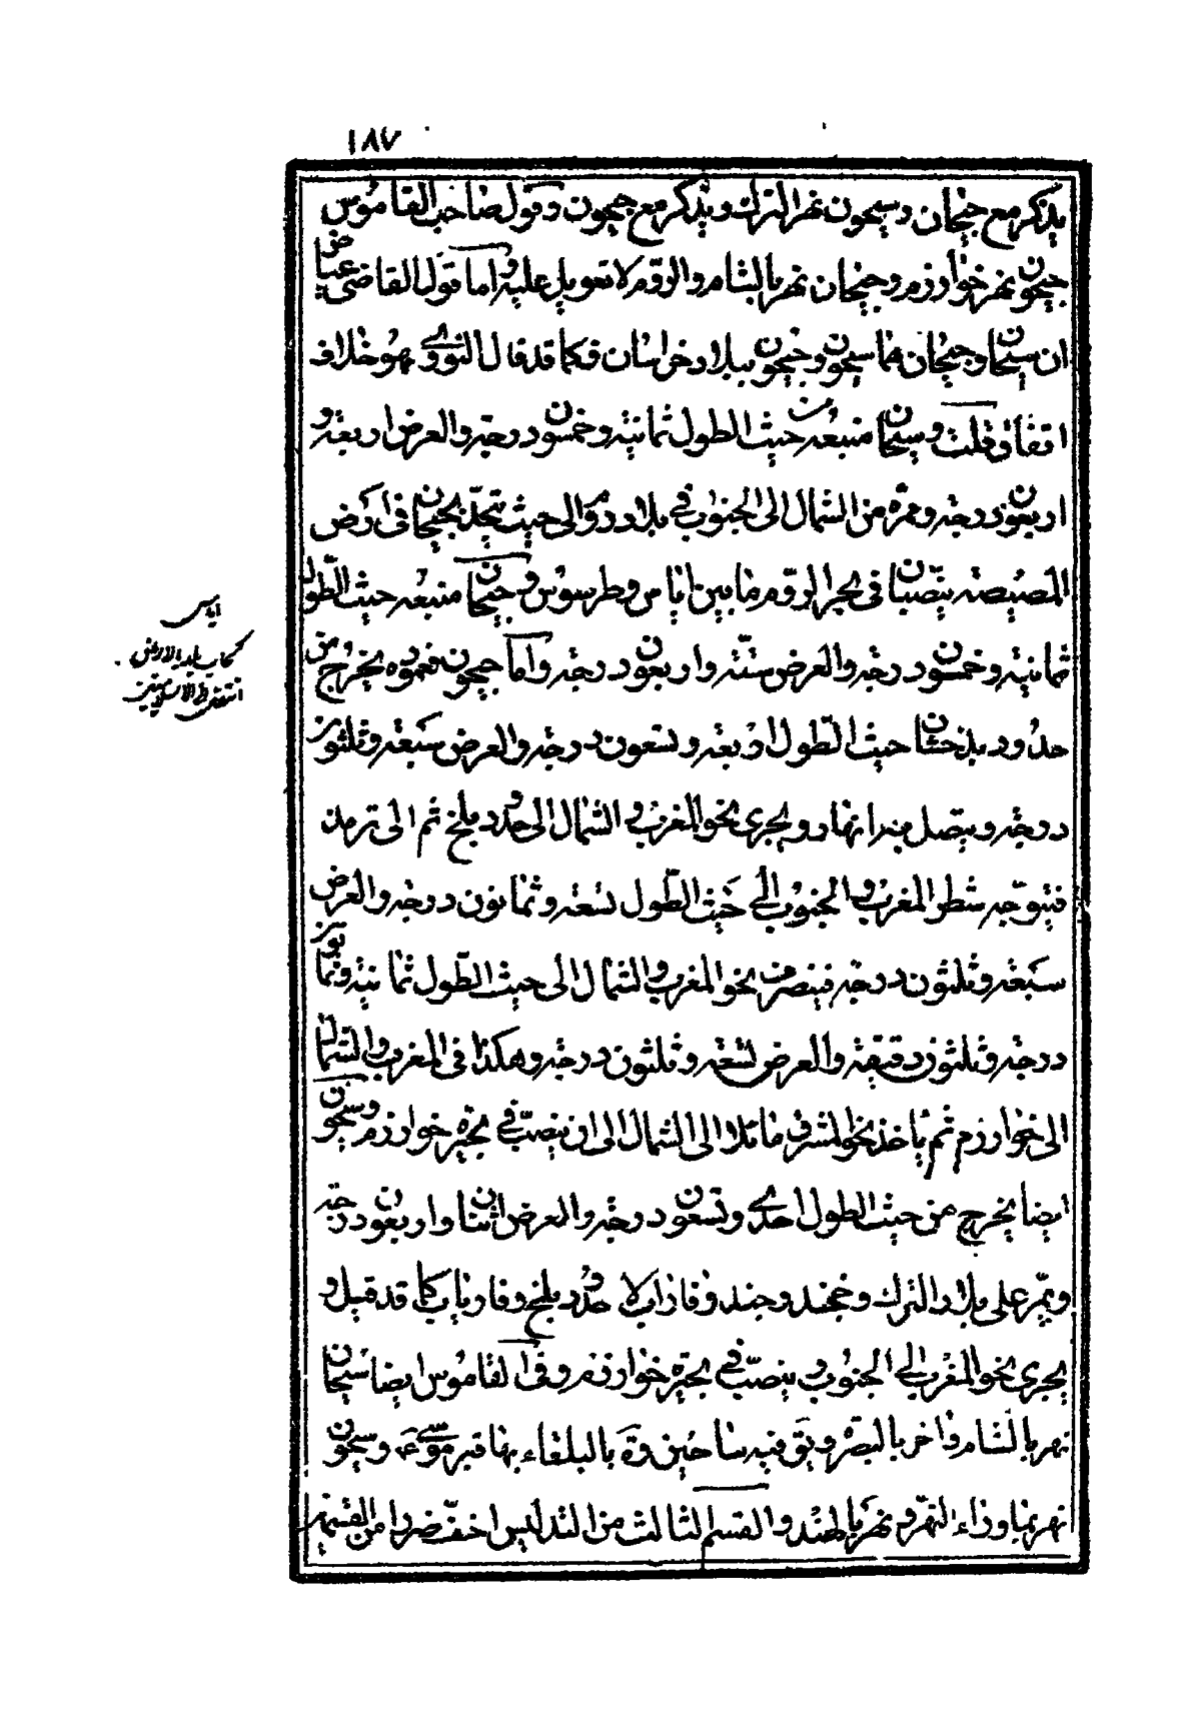 ١٨٧
يذكر مع جيحان وسيحون نهر الترك ويذكر مع جيحون وقول صاحب القاموس
جيحون نهر خوارزم وجيحان نهر بالشام والروم لا تعويل عليه واما قول القاضى عياض
ان سيحان وجيحان هما سيحون وجيحون ببلاد خراسان فكما قد قال النووى فهو خلاف
اتفاق قلت وسيحان منبعه من حيث الطول ثمانية وخمسون درجة والعرض اربعة و
اربعون درجة وممره من الشمال الى الجنوب فى بلاد روم الى حيث يتحد بجيحان فى ارض
المصيصة ينصبان فى بحر الروم ما بين اياس وطرسوس وجيحان منبعه حيث الطول
ثمانية وخمسون درجة والعرض ستة واربعون درجة واما جيحون فعموده يخرج من
حدود بدخشان حيث الطول اربعة وتسعون درجة والعرض سبعة وثلثون
درجة ويتصل به انهار ويجرى نحو المغرب و الشمال الى حدود بلخ ثم الى ترمذ
فيتوجه شطر المغرب والجنوب الى حيث الطول تسعة وثمانون درجة والعرض
سبعة وثلثون درجة فينصرف نحو المغرب والشمال الى حيث الطول ثمانية وثمانون
درجة وثلثون دقيقة والعرض تسعة وثلثون درجة وهكذا فى المغرب والشمال
الى خوارزم ثم ياخذ نحو المشرق مائلا الى الشمال الى ان ينصب فى بحيرة خوارزم وسيحون
ايضا يخرج من حيث الطول احدى وتسعون درجة والعرض اثنان واربعون درجة
ويمر على بلاد الترك وخجند وجند وفاراب لا حدود بلخ وفارياب كما قد قيل و
يجرى نحو المغرب الى الجنوب وينصب فى بحيرة خوارزم وفى القاموس ايضا سيحان
نهر بالشام واخر بالبصرة ويق فيه ساحين وة بالبلقاء بها قبر موسى ع وسيحون
نهر بما وراء النهر ونهر بالهند والقسم الثالث من التدليس اخف ضررا من القسمين
اياس